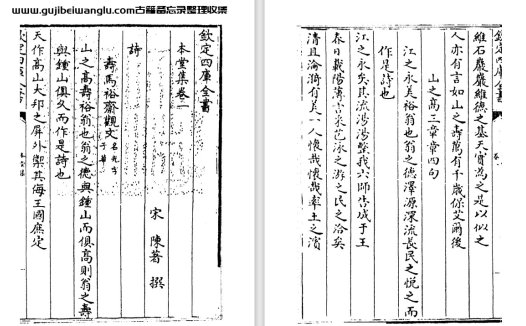 www.gujibeiwanglu.com古籍备忘录整理收集
欽定四庫全書
本堂集卷一
宋 陳著 撰
詩
壽馬裕齋觀文
山之高壽裕翁也翁之德與鍾山而俱高則翁之壽
與鍾山俱久而作是詩也
天作高山大邦之屏外禦其侮王國庶定
欽定四庫全書
維石巖巖維德之基天實為之是以似之
人亦有言如山之壽萬有千歲保艾爾後
山之高三章章四句
江之永美裕翁也翁之德澤源深流長民之悅之而
作是詩也
江之永矣其流湯湯整我六師告成于王
春日載陽薄言采芑泳之游之民之洽矣
清且淪漪有美一人懷哉懷哉率土之濱
欽定四庫全書